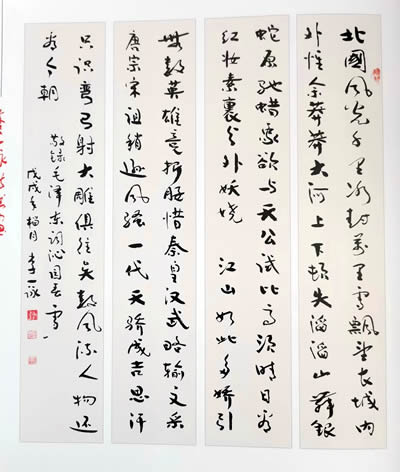 北國风光千里冰封萬里雪飄望长城内
外惟余莽莽大河上下顿失滔滔山舞銀
蛇原驰蜡象欲与天公试比高须晴日看
红妆素裹分外妖娆 江山如此多娇引
無數英雄竞折腰惜秦皇汉武略输文采
唐宗宋祖稍逊风骚一代天骄成吉思汗
只识弯弓射大雕俱往矣數风流人物还
看今朝
敬録毛泽东词沁园春雪
戊戌年 月 李一